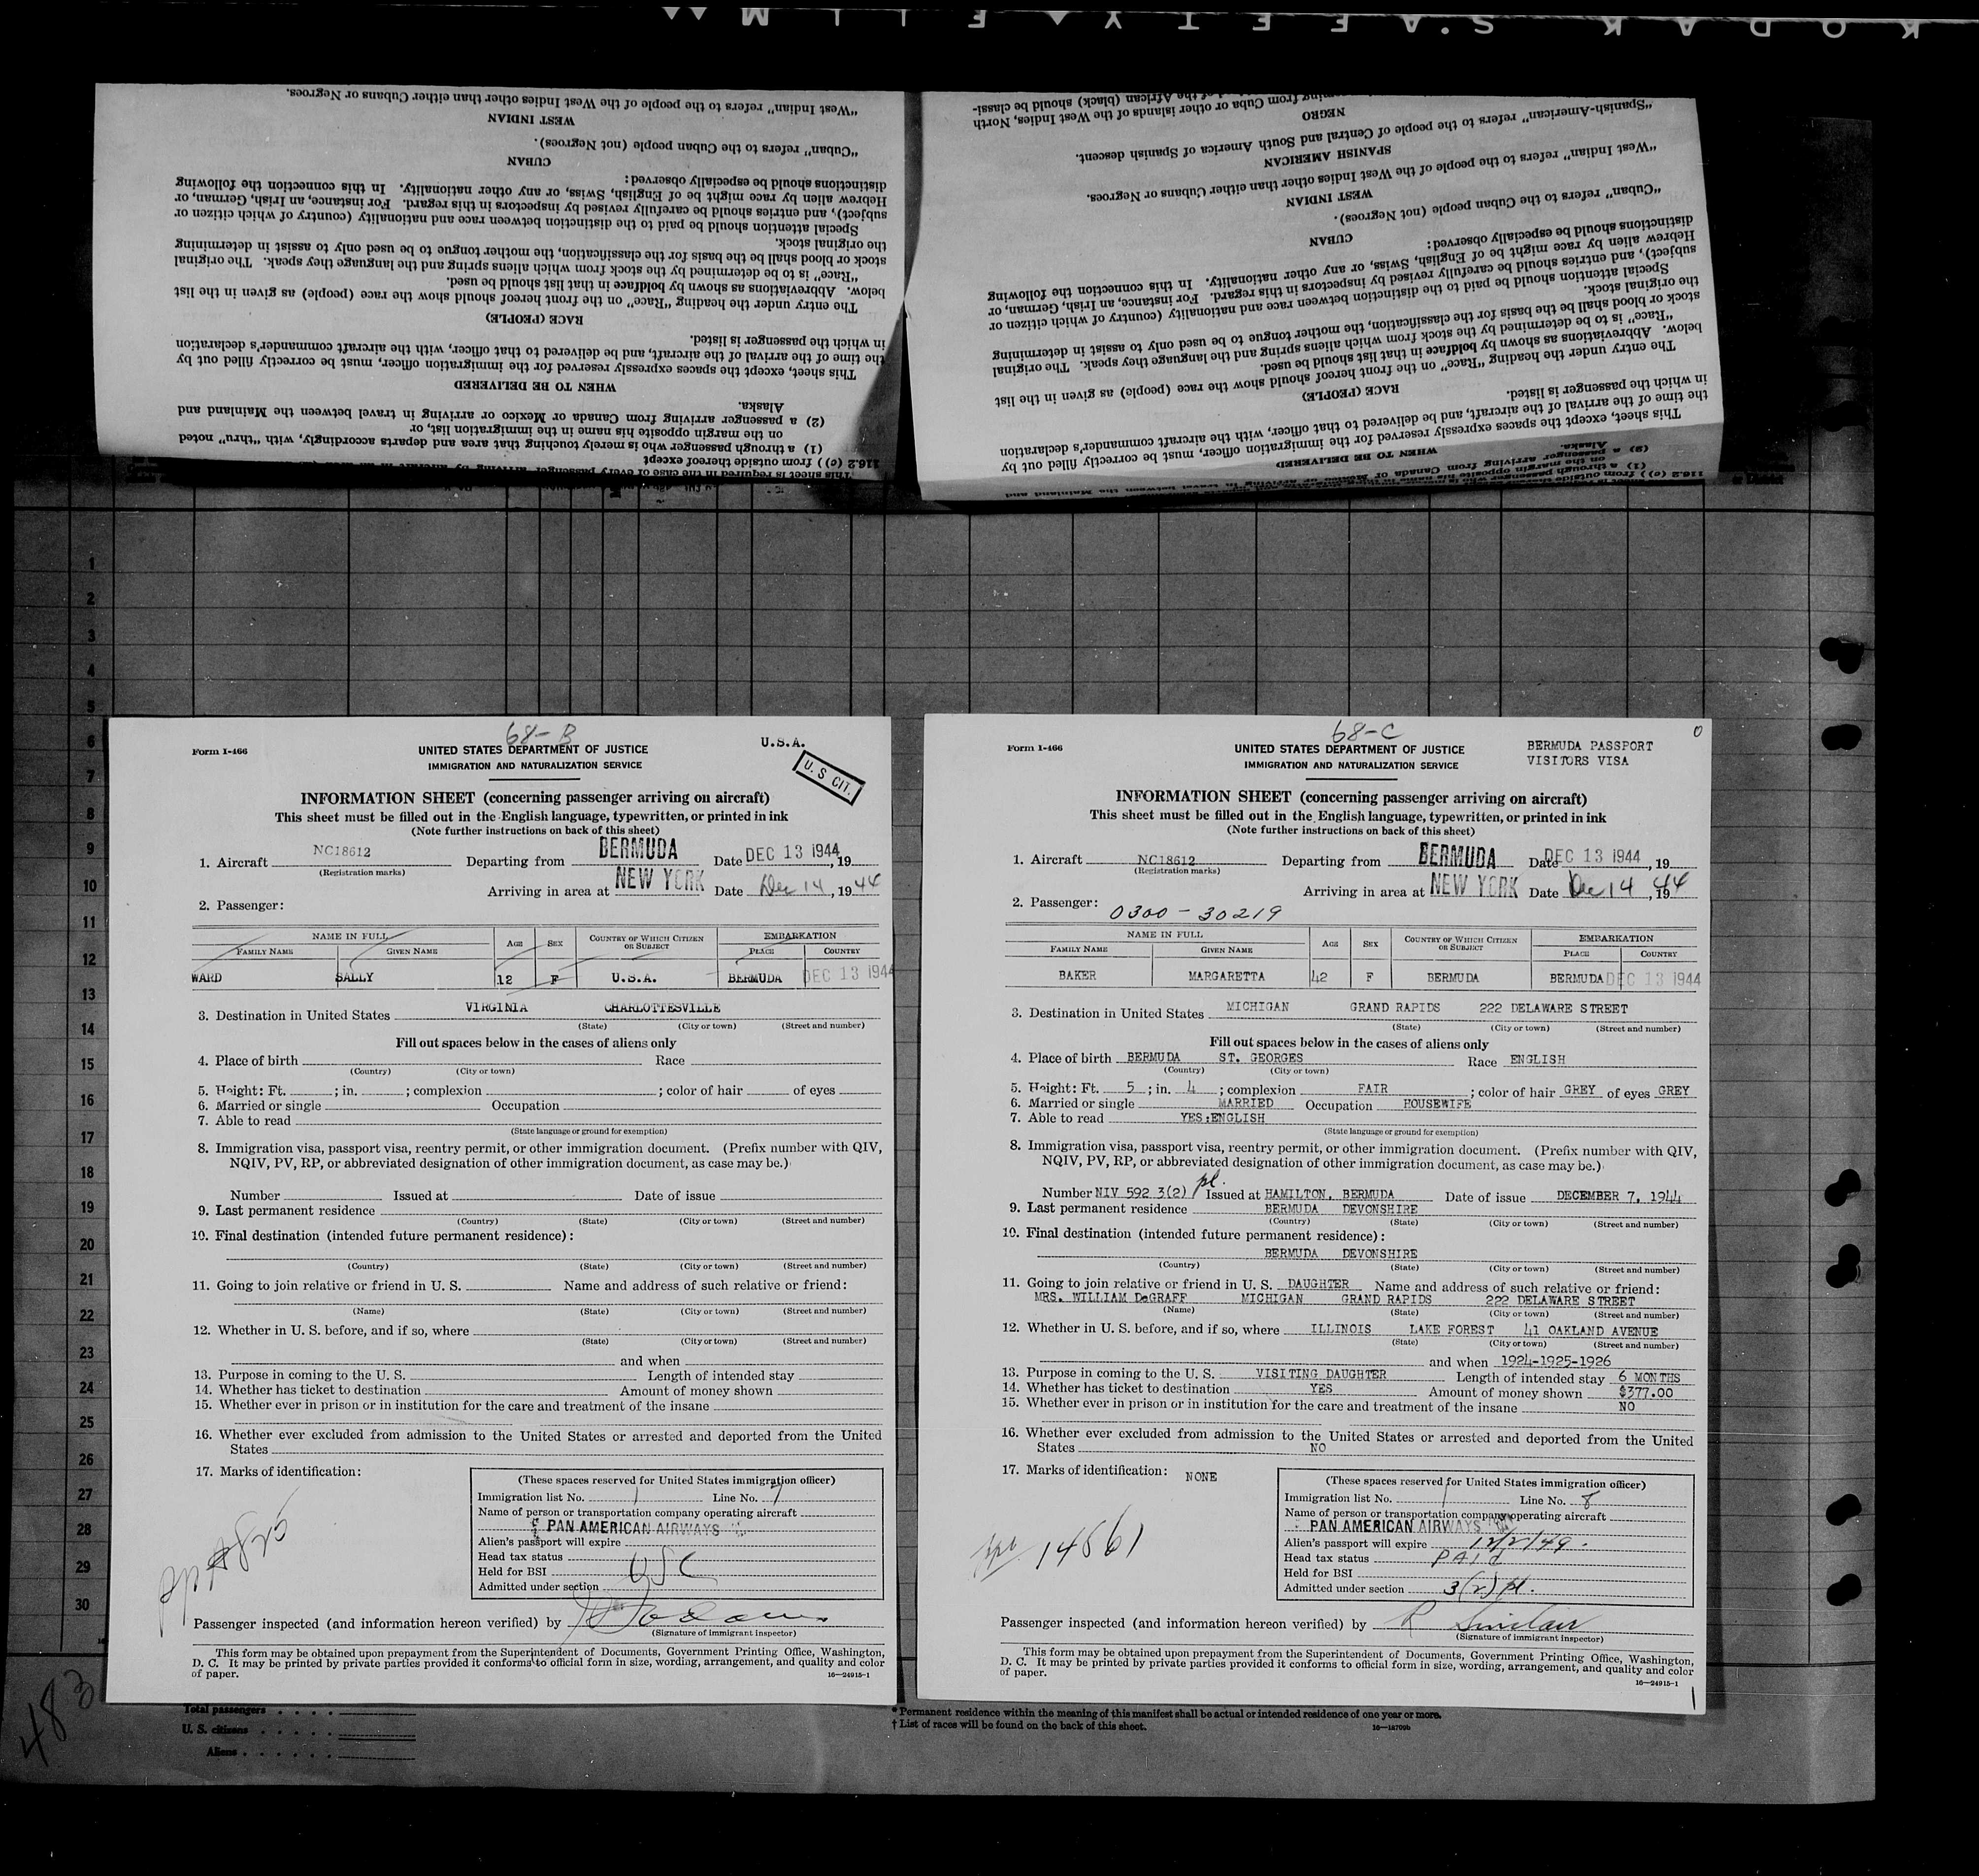 KODAK SAFETY FILM
"West Indian" refers to the people of the West Indies other than either Cubans or Negroes.
WEST INDIAN
"Cuban" refers to the Cuban people (not Negroes).
CUBAN
distinctions should be especially observed:
Hebrew alien by race might be of English, Swiss, or any other nationality. In this connection the following
subject), and entries should be carefully revised by inspectors in this regard. For instance, an Irish, German, or
Special attention should be paid to the distinction between race and nationality (country of which citizen or
the original stock.
stock or blood shall be the basis for the classification, the mother tongue to be used only to assist in determining
"Race" is to be determined by the stock from which aliens spring and the language they speak. The original
below. Abbreviations as shown by boldface in that list should be used.
The entry under the heading "Race" on the front hereof should show the race (people) as given in the list
RACE (PEOPLE)
in which the passenger is listed.
the time of the arrival of the aircraft, and be delivered to that officer, with the aircraft commander's declaration
This sheet, except the spaces expressly reserved for the immigration officer, must be correctly filled out by
WHEN TO BE DELIVERED
Alaska.
(2) a passenger arriving from Canada or Mexico or arriving in travel between the Mainland and
on the margin opposite his name in the immigration list, or
(1) a through passenger who is merely touching that area and departs accordingly, with "thru" noted
116.2 (c)) from outside thereof except
This sheet is required in the case of every passenger arriving by aircraft in
coming from Cuba or other islands of the West Indies, North
of the African (black) should be classi-
NEGRO
"Spanish-American" refers to the people of Central and South America of Spanish descent.
SPANISH AMERICAN
"West Indian" refers to the people of the West Indies other than either Cubans or Negroes.
WEST INDIAN
"Cuban" refers to the Cuban people (not Negroes).
CUBAN
distinctions should be especially observed:
Hebrew alien by race might be of English, Swiss, or any other nationality. In this connection the following
subject), and entries should be carefully revised by inspectors in this regard. For instance, an Irish, German, or
Special attention should be paid to the distinction between race and nationality (country of which citizen or
the original stock.
stock or blood shall be the basis for the classification, the mother tongue to be used only to assist in determining
"Race" is to be determined by the stock from which aliens spring and the language they speak. The original
below. Abbreviations as shown by boldface in that list should be used.
The entry under the heading "Race" on the front hereof should show the race (people) as given in the list
RACE (PEOPLE)
in which the passenger is listed.
the time of the arrival of the aircraft, and be delivered to that officer, with the aircraft commander's declaration
This sheet, except the spaces expressly reserved for the immigration officer, must be correctly filled out by
WHEN TO BE DELIVERED
Alaska.
(2) a passenger arriving from Canada or Mexico or arriving in travel between the Mainland and
1
2
3
4
5
6
7
8
9
10
11
12
13
14
15
16
17
18
19
20
21
22
23
24
25
26
27
28
29
30
68-B
Form I-466
UNITED STATES DEPARTMENT OF JUSTICE
U.S.A.
IMMIGRATION AND NATURALIZATION SERVICE
U.S CIT.
INFORMATION SHEET (concerning passenger arriving on aircraft)
This sheet must be filled out in the English language, typewritten, or printed in ink
(Note further instructions on back of this sheet)
1. Aircraft NC18612 Departing from BERMUDA Date DEC 13 1944, 19
(Registration marks)
Arriving in area at NEW YORK Date Dec 14, 1944
2. Passenger:
NAME IN FULL AGE SEX COUNTRY OF WHICH CITIZEN OR SUBJECT EMBARKATION
FAMILY NAME GIVEN NAME PLACE COUNTRY
WARD SALLY 12 F U.S.A. BERMUDA DEC 13 1944
3. Destination in United States VIRGINIA CHARLOTTESVILLE
(State) (City or town) (Street and number)
Fill out spaces below in the cases of aliens only
4. Place of birth Race
(Country) (City or town)
5. Height: Ft. ; in. ; complexion ; color of hair of eyes
6. Married or single Occupation
7. Able to read
(State language or ground for exemption)
8. Immigration visa, passport visa, reentry permit, or other immigration document. (Prefix number with QIV,
NQIV, PV, RP, or abbreviated designation of other immigration document, as case may be.)
Number Issued at Date of issue
9. Last permanent residence
(Country) (State) (City or town) (Street and number)
10. Final destination (intended future permanent residence):
(Country) (State) (City or town) (Street and number)
11. Going to join relative or friend in U. S. Name and address of such relative or friend:
(Name) (State) (City or town) (Street and number)
12. Whether in U. S. before, and if so, where
(State) (City or town) (Street and number)
and when
13. Purpose in coming to the U. S. Length of intended stay
14. Whether has ticket to destination Amount of money shown
15. Whether ever in prison or in institution for the care and treatment of the insane
16. Whether ever excluded from admission to the United States or arrested and deported from the United
States
17. Marks of identification:
(These spaces reserved for United States immigration officer)
Immigration list No. 1 Line No. 7
Name of person or transportation company operating aircraft
PAN AMERICAN AIRWAYS
Alien's passport will expire
Head tax status USC
Held for BSI
Admitted under section
Passenger inspected (and information hereon verified) by
(Signature of immigrant inspector)
This form may be obtained upon prepayment from the Superintendent of Documents, Government Printing Office, Washington,
D. C. It may be printed by private parties provided it conforms to official form in size, wording, arrangement, and quality and color
of paper.
16—24915-1
68-C
0
Form I-466
UNITED STATES DEPARTMENT OF JUSTICE
BERMUDA PASSPORT
IMMIGRATION AND NATURALIZATION SERVICE
VISITORS VISA
INFORMATION SHEET (concerning passenger arriving on aircraft)
This sheet must be filled out in the English language, typewritten, or printed in ink
(Note further instructions on back of this sheet)
1. Aircraft NC18612 Departing from BERMUDA Date DEC 13 1944, 19
(Registration marks)
Arriving in area at NEW YORK Date Dec 14, 1944
2. Passenger: 0300-30219
NAME IN FULL AGE SEX COUNTRY OF WHICH CITIZEN OR SUBJECT EMBARKATION
FAMILY NAME GIVEN NAME PLACE COUNTRY
BAKER MARGARETTA 42 F BERMUDA BERMUDA DEC 13 1944
3. Destination in United States MICHIGAN GRAND RAPIDS 222 DELAWARE STREET
(State) (City or town) (Street and number)
Fill out spaces below in the cases of aliens only
4. Place of birth BERMUDA ST. GEORGES Race ENGLISH
(Country) (City or town)
5. Height: Ft. 5 ; in. 4 ; complexion FAIR ; color of hair GREY of eyes GREY
6. Married or single MARRIED Occupation HOUSEWIFE
7. Able to read YES:ENGLISH
(State language or ground for exemption)
8. Immigration visa, passport visa, reentry permit, or other immigration document. (Prefix number with QIV,
NQIV, PV, RP, or abbreviated designation of other immigration document, as case may be.)
Number NIV 592 3(2) pl. Issued at HAMILTON, BERMUDA Date of issue DECEMBER 7, 1944
9. Last permanent residence BERMUDA DEVONSHIRE
(Country) (State) (City or town) (Street and number)
10. Final destination (intended future permanent residence):
BERMUDA DEVONSHIRE
(Country) (State) (City or town) (Street and number)
11. Going to join relative or friend in U. S. DAUGHTER Name and address of such relative or friend:
MRS. WILLIAM DeGRAFF MICHIGAN GRAND RAPIDS 222 DELAWARE STREET
(Name) (State) (City or town) (Street and number)
12. Whether in U. S. before, and if so, where ILLINOIS LAKE FOREST 41 OAKLAND AVENUE
(State) (City or town) (Street and number)
and when 1924-1925-1926
13. Purpose in coming to the U. S. VISITING DAUGHTER Length of intended stay 6 MONTHS
14. Whether has ticket to destination YES Amount of money shown $377.00
15. Whether ever in prison or in institution for the care and treatment of the insane NO
16. Whether ever excluded from admission to the United States or arrested and deported from the United
States NO
17. Marks of identification: NONE
14861
(These spaces reserved for United States immigration officer)
Immigration list No. 1 Line No. 8
Name of person or transportation company operating aircraft
PAN AMERICAN AIRWAYS
Alien's passport will expire 12/2/49.
Head tax status PAID
Held for BSI
Admitted under section 3(2) pl.
Passenger inspected (and information hereon verified) by R Sinclair
(Signature of immigrant inspector)
This form may be obtained upon prepayment from the Superintendent of Documents, Government Printing Office, Washington,
D. C. It may be printed by private parties provided it conforms to official form in size, wording, arrangement, and quality and color
of paper.
16—24915-1
483
Total passengers
U. S. citizens
Aliens
* Permanent residence within the meaning of this manifest shall be actual or intended residence of one year or more.
† List of races will be found on the back of this sheet.